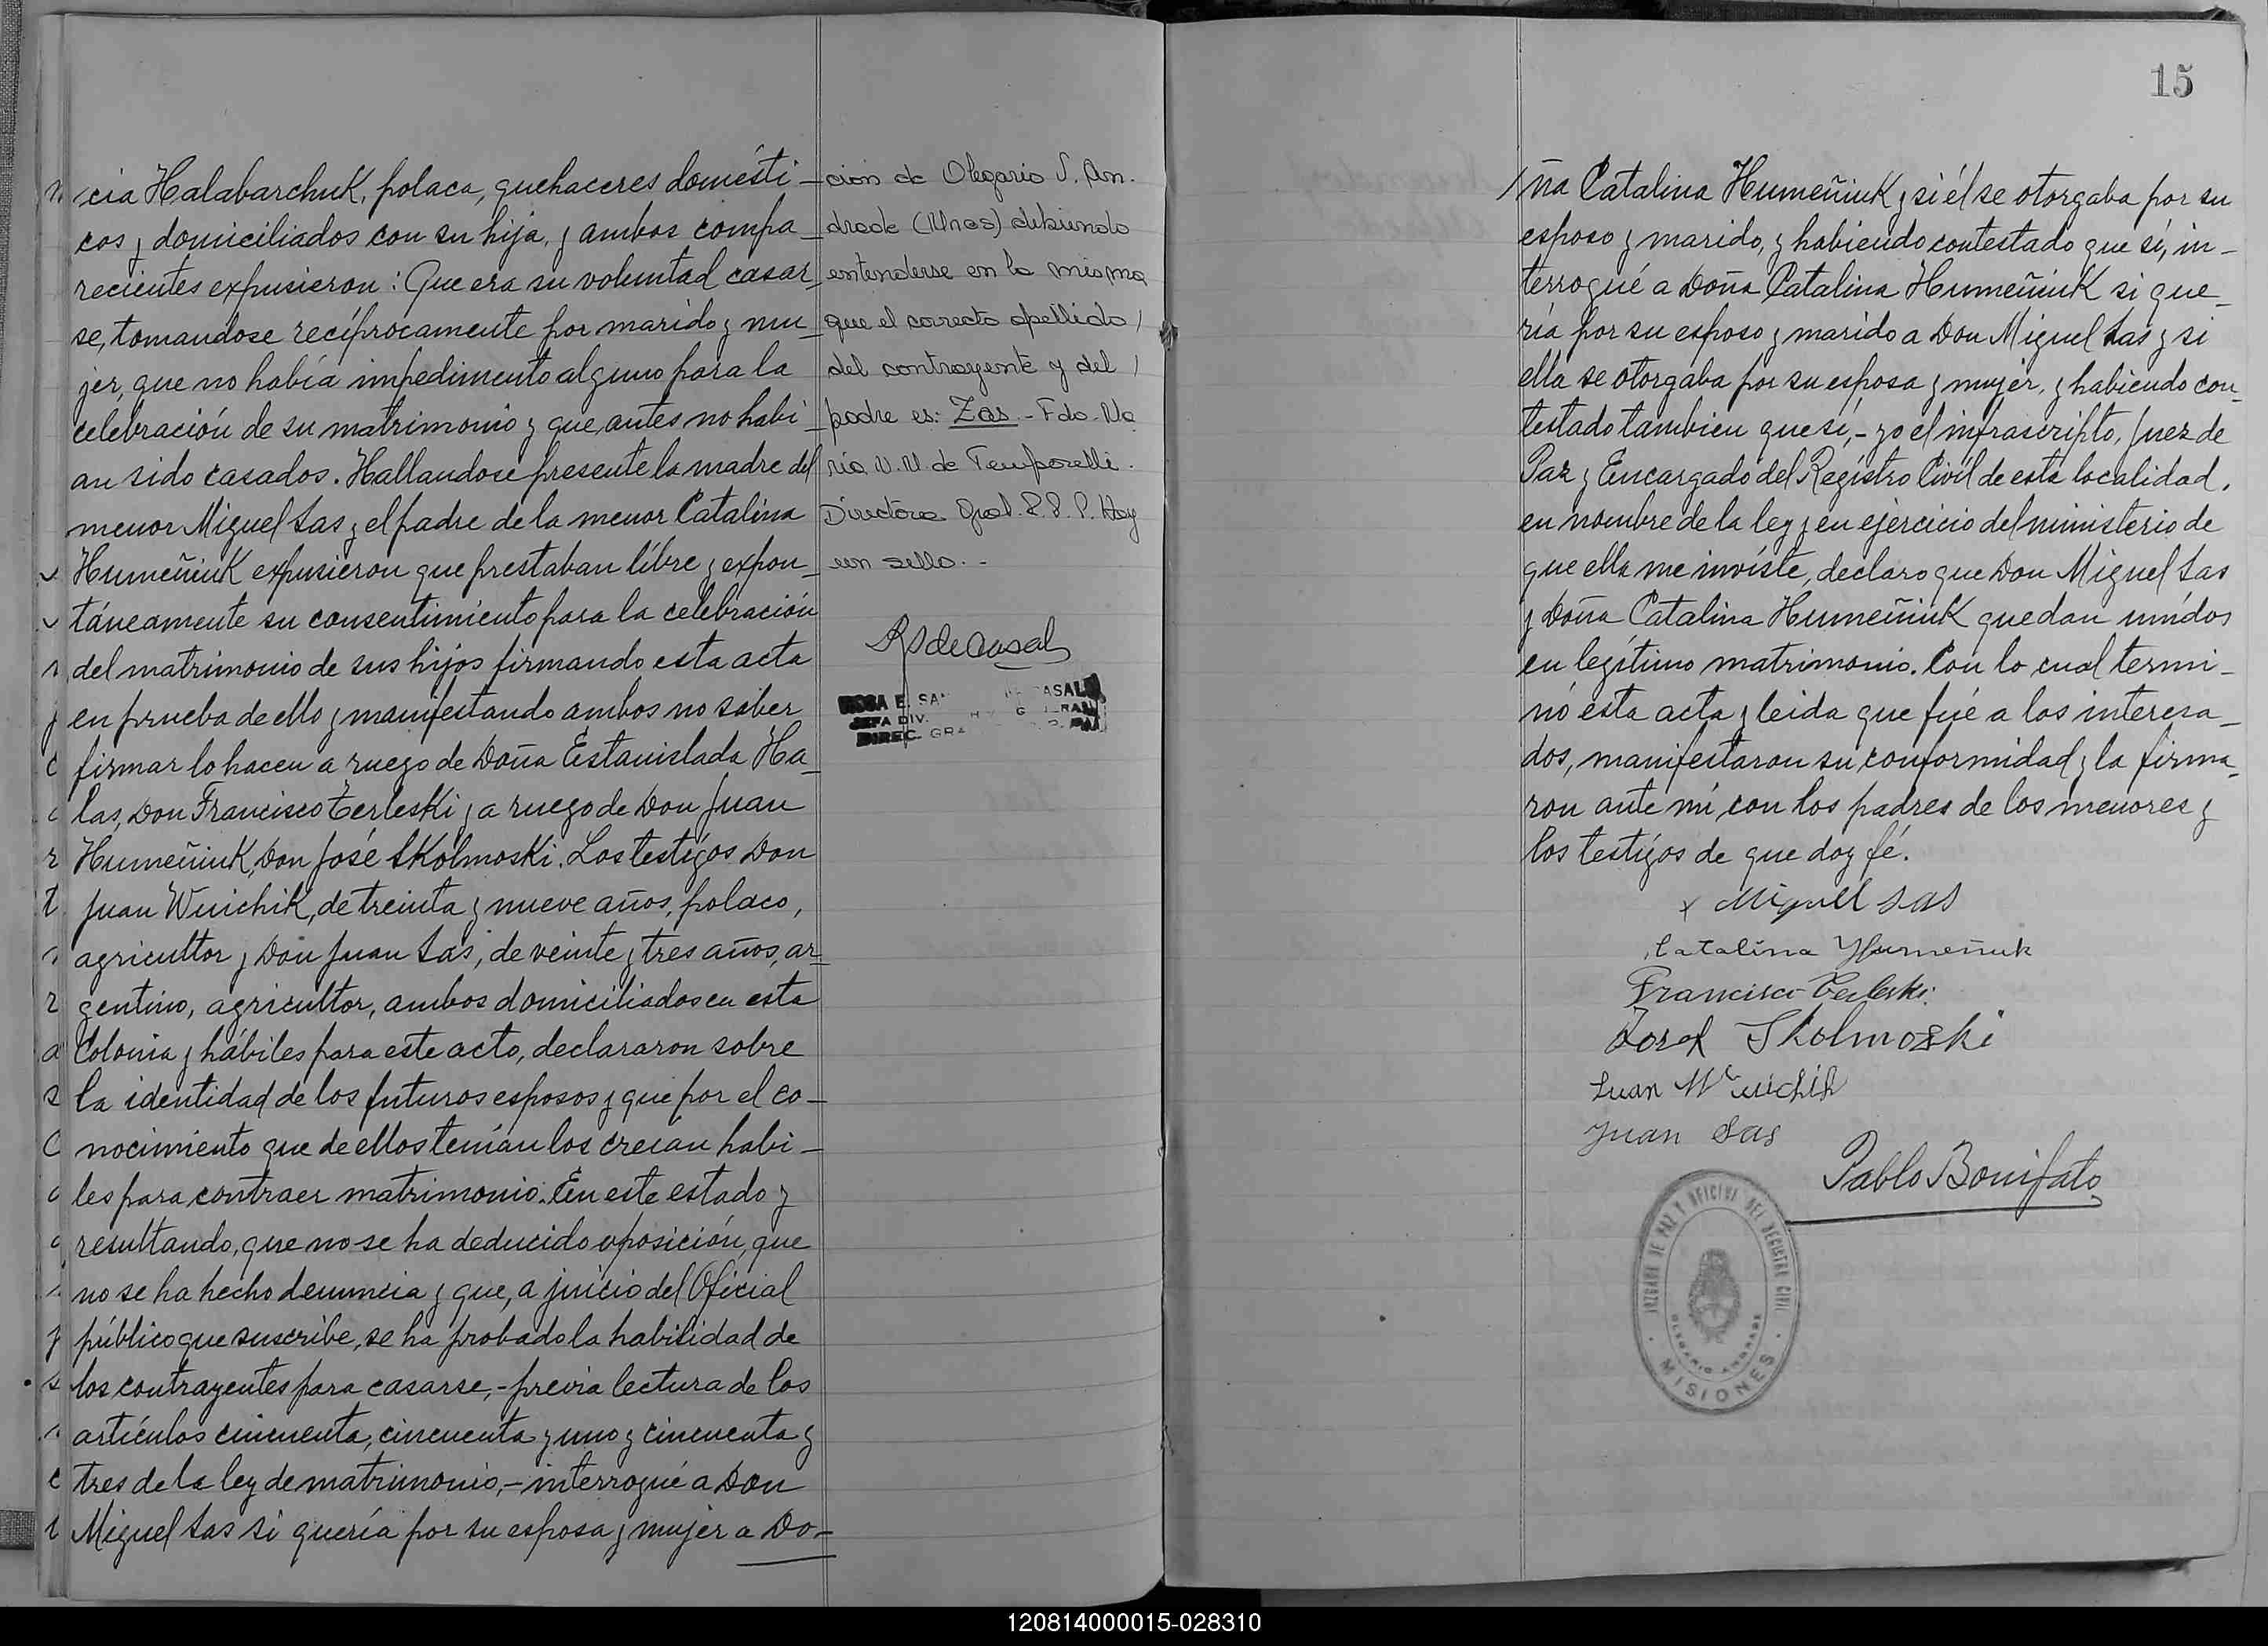 cia Halabarchuk, polaca, quehaceres domésti-
cos y domiciliados con su hija, y ambos compa-
recientes expusieron: Que era su voluntad casar-
se, tomandose recíprocamente por marido y mu-
jer, que no había impedimento alguno para la
celebración de su matrimonio y que, antes no habi-
an sido casados. Hallandose presente la madre del
menor Miguel Sas y el padre de la menor Catalina
Humeñiuk expusieron que prestaban líbre y expon-
táneamente su consentimiento para la celebración
del matrimonio de sus hijos firmando esta acta
en prueba de ello y manifestando ambos no saber
firmar lo hacen a ruego de Doña Estanislada Ha-
las, Don Francisco Terleski y a ruego de Don Juan
Humeñiuk, Don José Skolmoski. Los testígos Don
Juan Wuichik, de treinta y nueve años, polaco,
agricultor y Don Juan Sas, de veinte y tres años, ar-
gentino, agricultor, ambos domiciliados en esta
Colonia y hábiles para este acto, declararon sobre
la identidad de los futuros esposos y que por el co-
nocimiento que de ellos tenían los creian habi-
les para contraer matrimonio. En este estado y
resultando, que no se ha deducido oposición, que
no se ha hecho denuncia y que, a juicio del Oficial
público que suscribe, se ha probado la habilidad de
los contrayentes para casarse,- previa lectura de los
artículos cincuenta, cincuenta y uno y cincuenta y
tres de la ley de matrimonio,- interrogué a Don
Miguel Sas si quería por su esposa y mujer a Do-
ción de Olegario V. An-
drade (Mnes) debiendo
entenderse en la misma
que el correcto apellido /
del contrayente y del /
padre es: Zas.- Fdo. Ma
ría V. V. de Temporelli.
Directora Gral. R.P.P. Hay
un sello.-
RSdeCasal
ROSA E. SA CASAL
JEFA DIV. GENERAL
DIREC. GRA
15
/ña Catalina Humeñiuk y si él se otorgaba por su
esposo y marido, y habiendo contestado que sí, in-
terrogué a Doña Catalina Humeñiuk si que-
ría por su esposo y marido a Don Miguel Sas y si
ella se otorgaba por su esposa y mujer, y habiendo con-
testado tambien que sí,- yo el infrascripto, Juez de
Paz y Encargado del Regístro Civíl de esta localidad,
en nombre de la ley y en ejercicio del ministerio de
que ella me invíste, declaro que Don Miguel Sas
y Doña Catalina Humeñiuk quedan unídos
en legítimo matrimonio. Con lo cual termi-
nó esta acta y leida que fué a los interesa-
dos, manifestaron su conformidad y la firma-
ron ante mí, con los padres de los menores y
los testígos de que doy fé.
x Miguel Sas
Catalina Humeñuk
Francisco Terleski
Josef Skolmoski
Juan Wuichik
Juan Sas
Pablo Bonifato
JUZGADO DE PAZ Y OFICINA DEL REGISTRO CIVIL
OLEGARIO ANDRADE
MISIONES
120814000015-028310